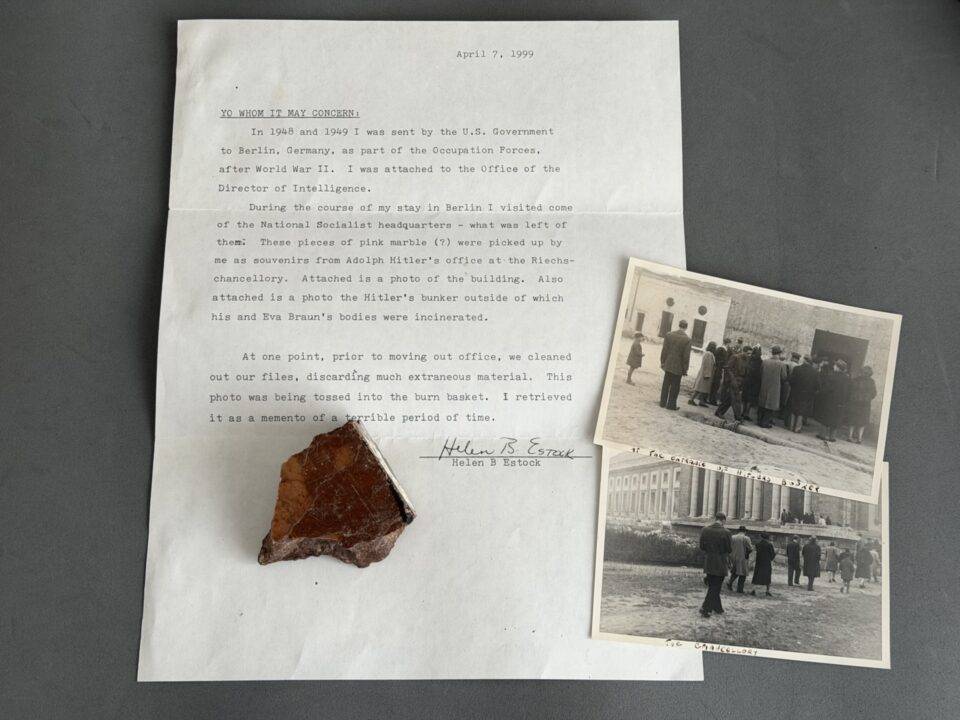 April 7, 1999
YO WHOM IT MAY CONCERN:
In 1948 and 1949 I was sent by the U.S. Government
to Berlin, Germany, as part of the Occupation Forces,
after World War II. I was attached to the Office of the
Director of Intelligence.
During the course of my stay in Berlin I visited come
of the National Socialist headquarters - what was left of
them. These pieces of pink marble (?) were picked up by
me as souvenirs from Adolph Hitler's office at the Riechs-
chancellory. Attached is a photo of the building. Also
attached is a photo the Hitler's bunker outside of which
his and Eva Braun's bodies were incinerated.
At one point, prior to moving out office, we cleaned
out our files, discarding much extraneous material. This
photo was being tossed into the burn basket. I retrieved
it as a memento of a terrible period of time.
Helen B. Estock
Helen B Estock
AT THE ENTRANCE OF HITLERS BUNKER
THE CHANCELLORY